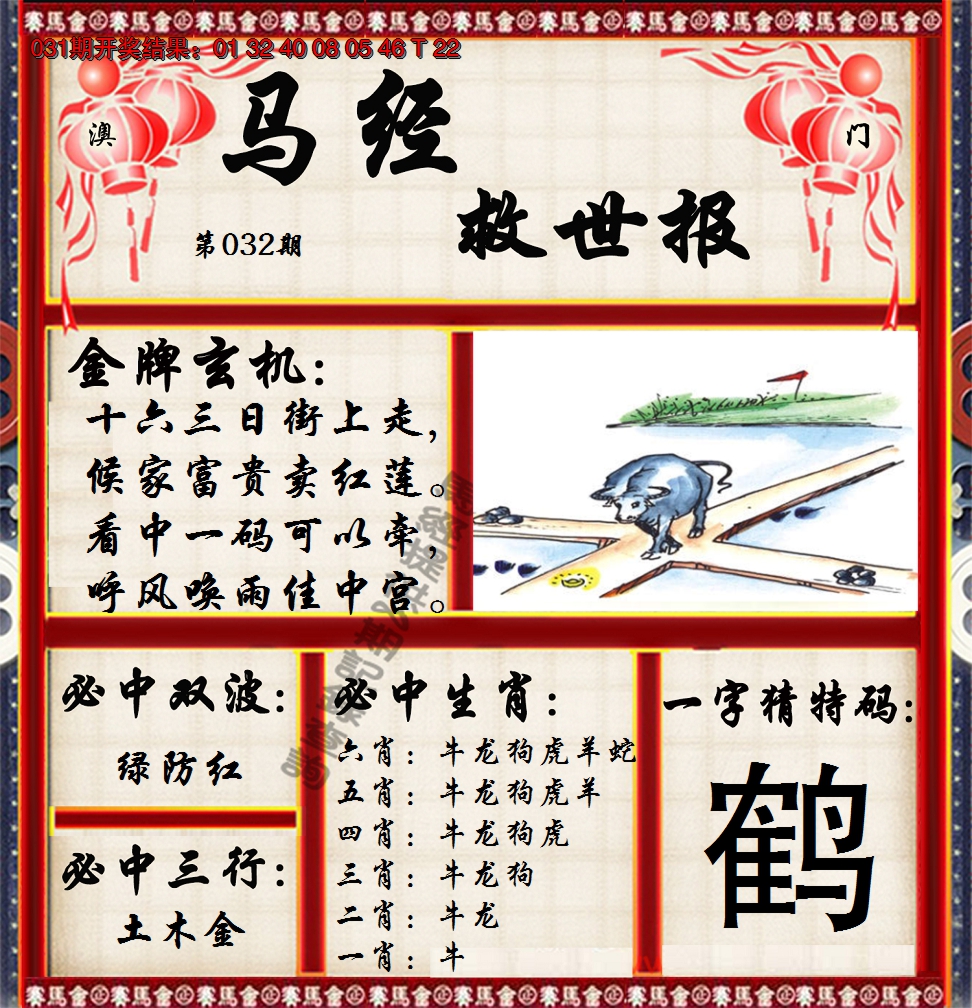 賽馬會
031期开奖结果：01 32 40 08 05 46 T 22
澳 门
马经
救世报
第032期
金牌玄机：
十六三日街上走，
候家富贵卖红莲。
看中一码可以牵，
呼风唤雨佳中宫。
必中双波：
绿防红
必中三行：
土木金
必中生肖：
六肖：牛龙狗虎羊蛇
五肖：牛龙狗虎羊
四肖：牛龙狗虎
三肖：牛龙狗
二肖：牛龙
一肖：牛
一字猜特码：
鹤